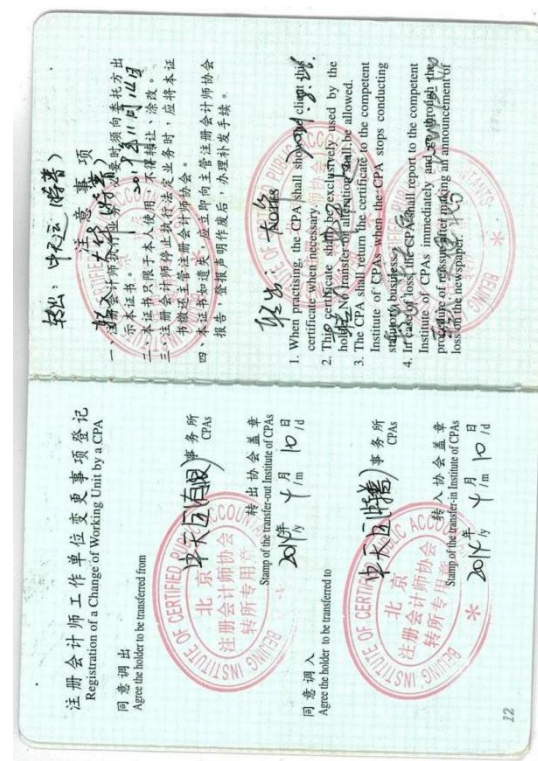 注册会计师工作单位变更事项登记
Registration of a Change of Working Unit by a CPA
同意调出
Agree the holder to be transferred from
事务所
CPAs
转出协会盖章
Stamp of the transfer-out Institute of CPAs
2014年 4月 10日
/y /m /d
BEIJING INSTITUTE OF CERTIFIED PUBLIC ACCOUNTANTS
北京
注册会计师协会
转所专用章
同意调入
Agree the holder to be transferred to
事务所
CPAs
转入协会盖章
Stamp of the transfer-in Institute of CPAs
2014年 4月 10日
/y /m /d
BEIJING INSTITUTE OF CERTIFIED PUBLIC ACCOUNTANTS
北京
注册会计师协会
转所专用章
12
注意事项
一、注册会计师执行业务，必要时须向委托方出
示本证书。
二、本证书只限于本人使用，不得转让、涂改。
三、注册会计师停止执行法定业务时，应将本证
书缴还主管注册会计师协会。
四、本证书如遗失，应立即向主管注册会计师协会
报告，登报声明作废后，办理补发手续。
Notes
1. When practising, the CPA shall show the client this
certificate when necessary.
2. This certificate shall be exclusively used by the
holder. No transfer or alteration shall be allowed.
3. The CPA shall return the certificate to the competent
Institute of CPAs when the CPA stops conducting
statutory business.
4. In case of loss, the CPA shall report to the competent
Institute of CPAs immediately and go through the
procedure of reissue after making an announcement of
loss on the newspaper.